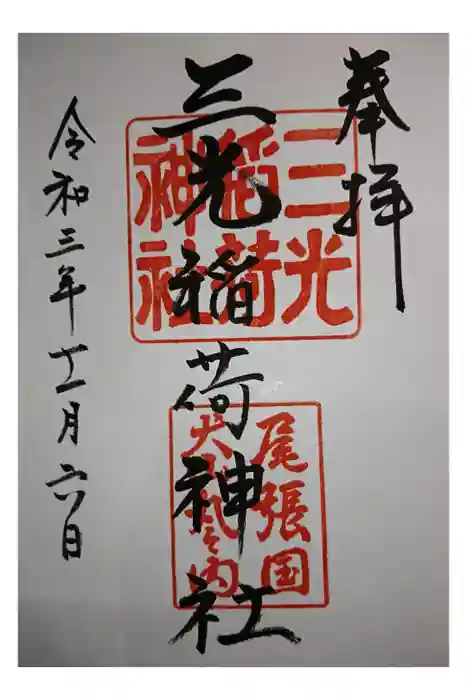 奉拝
三光稲荷神社
三光
稲荷
神社
尾張国
令和三年十一月六日